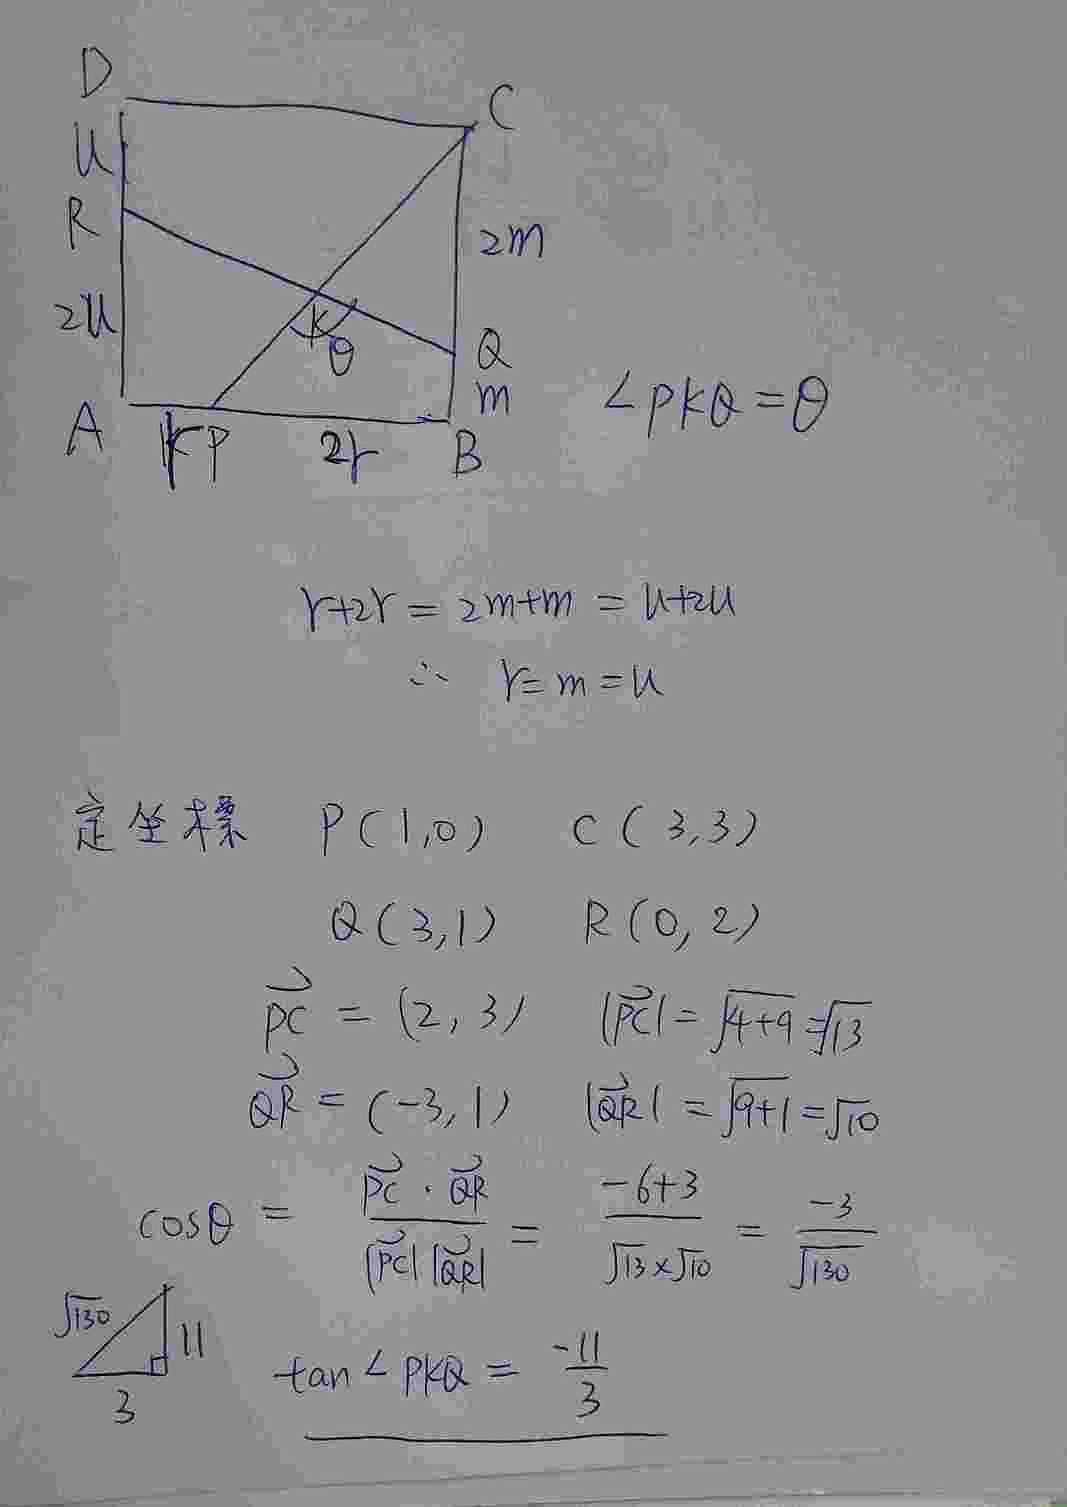 D
C
U
R
2m
2U
K
θ
Q
m
A
r P
2r
B
∠PKQ=θ
r+2r = 2m+m = U+2U
∴ r=m=U
定坐標 P(1,0) C(3,3)
Q(3,1) R(0,2)
PC⃗ = (2,3) |PC⃗| = √4+9 = √13
QR⃗ = (-3,1) |QR⃗| = √9+1 = √10
cosθ = PC⃗·QR⃗ / |PC⃗||QR⃗| = -6+3 / √13×√10 = -3 / √130
√130
11
3
tan∠PKQ = -11/3